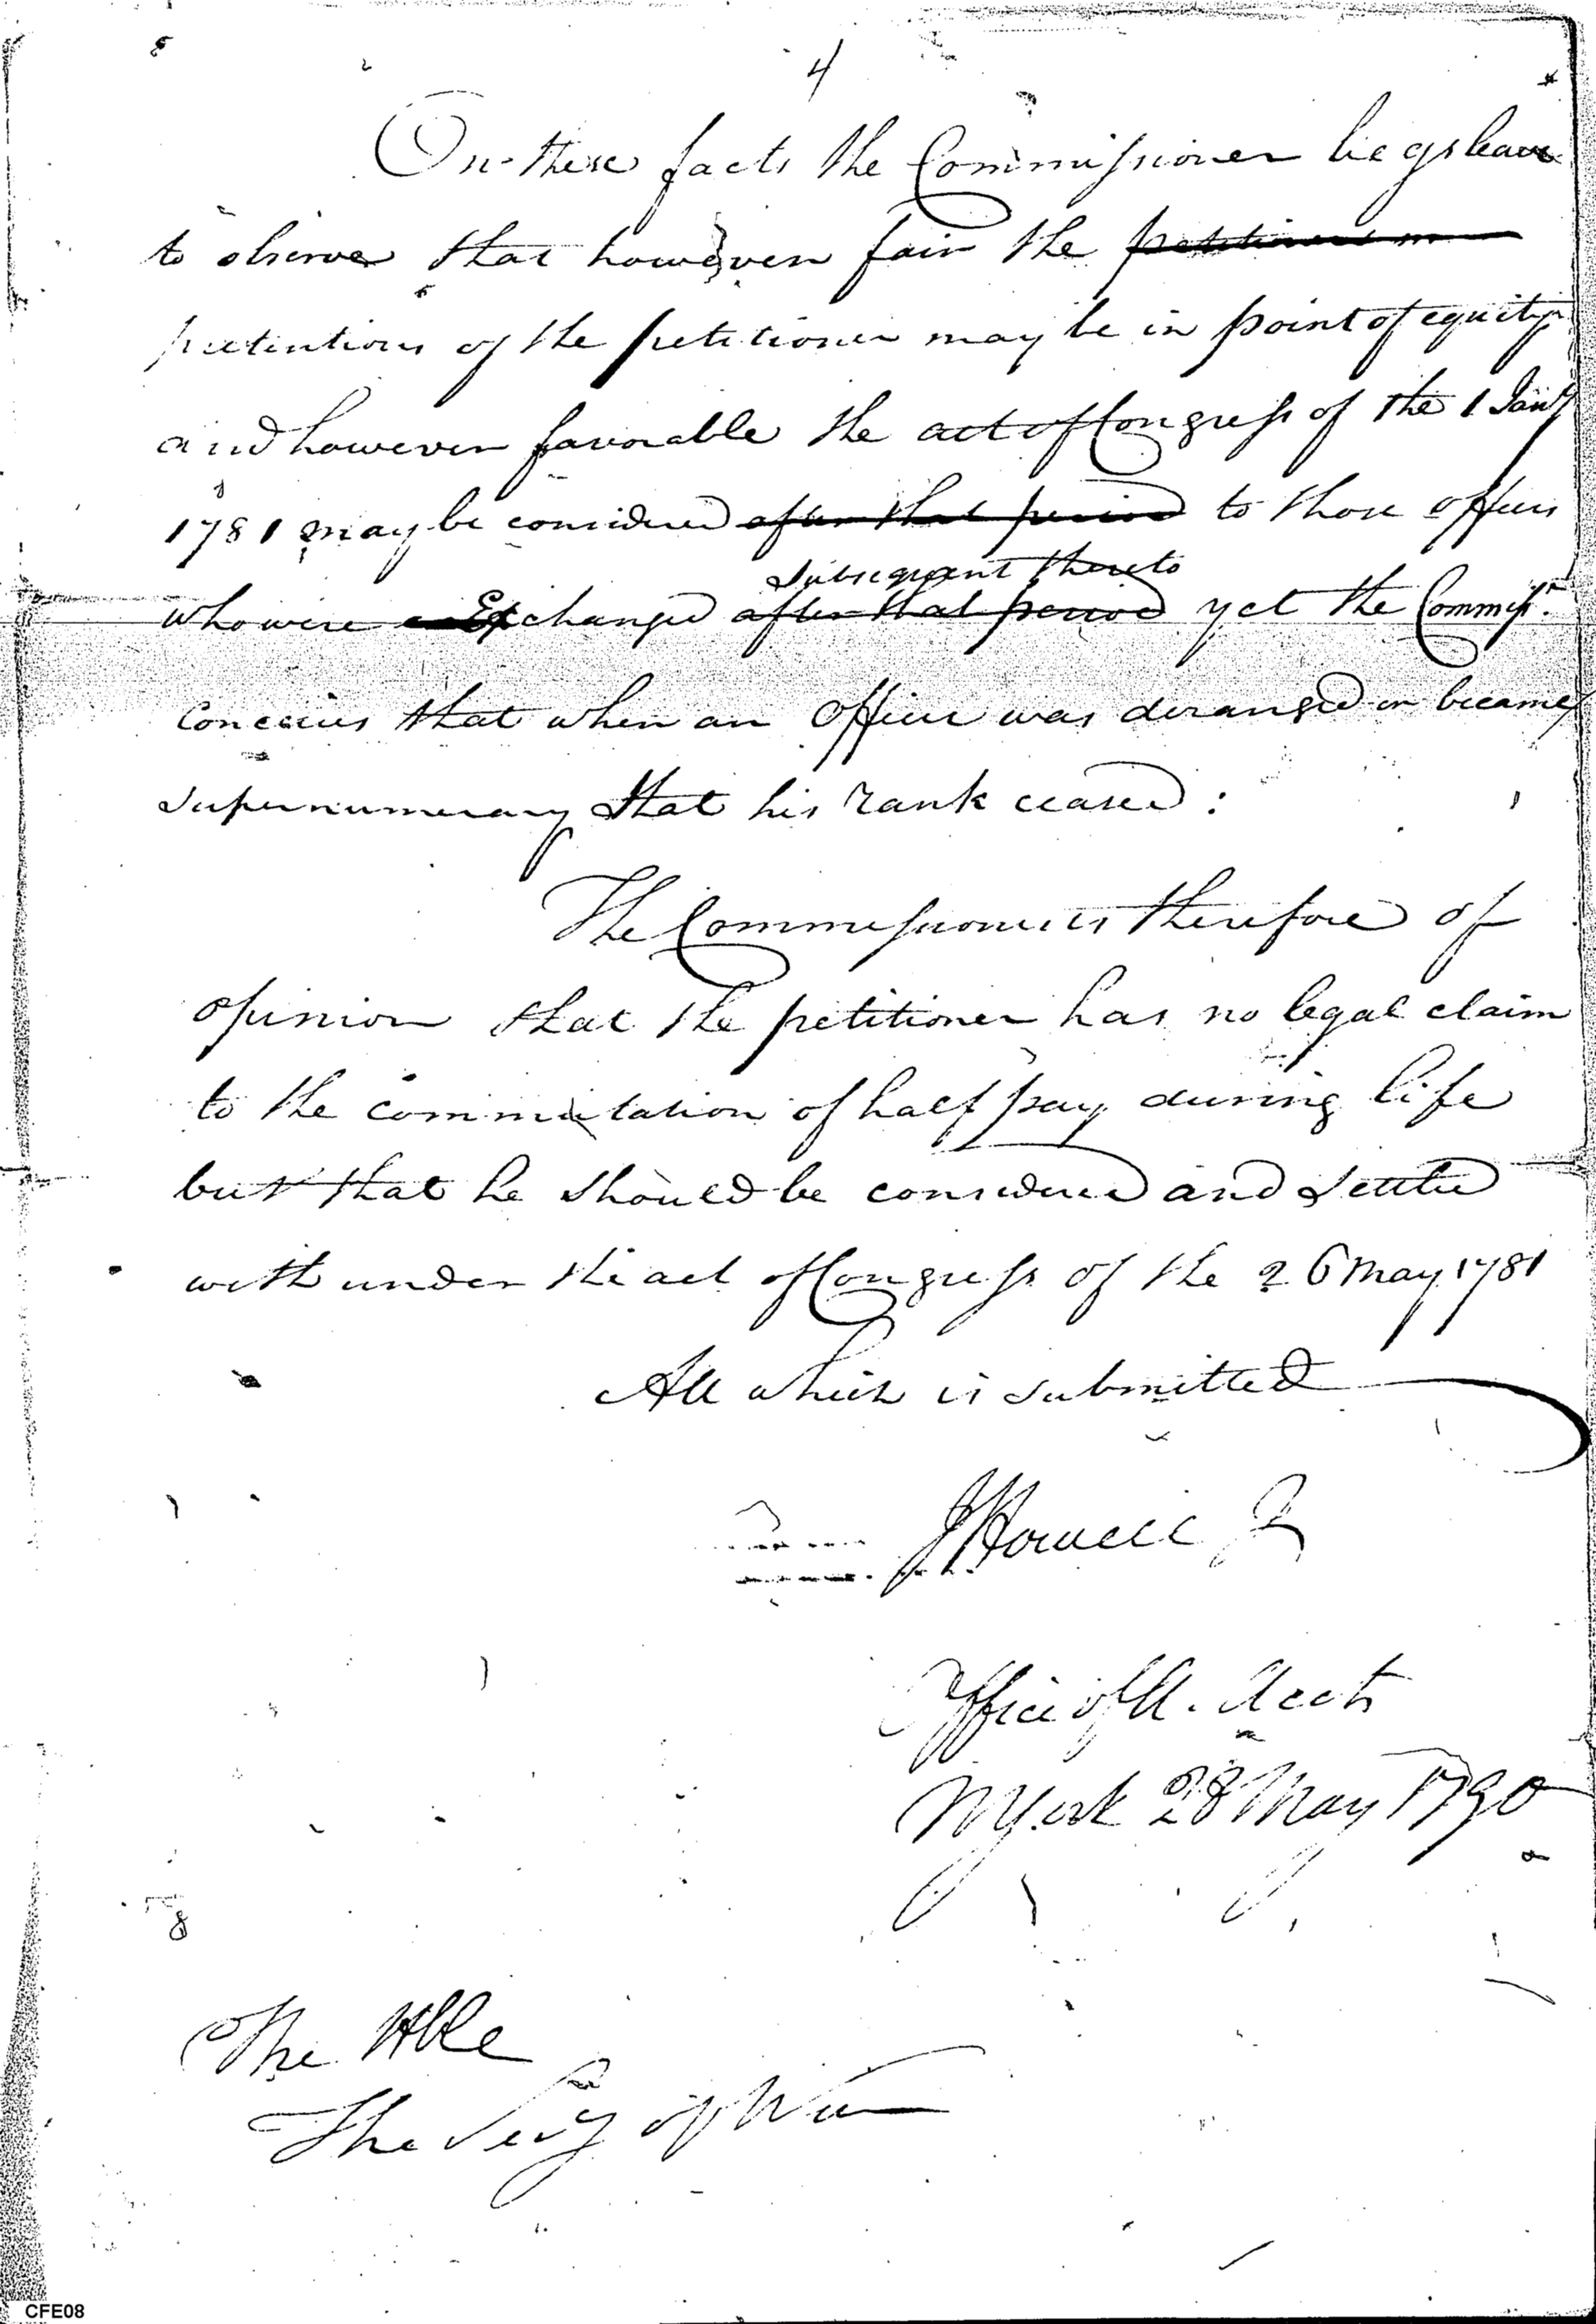 4
On these facts the Commissioner begs leave
to observe that however fair the petitioners
pretentions of the petitioner may be in point of equity
and however favorable the act of Congress of the 1 Jany
1781 may be considered after that period to those officers
subsequent thereto
who were Exchanged after that period yet the Commissr.
conceives that when an Officer was deranged or became
supernumerary that his rank ceased:
The Commissioner is therefore of
opinion that the petitioner has no legal claim
to the commutation of half pay during life
but that he should be considered and settled
with under the act of Congress of the 26 May 1781
All which is submitted
J Howell Jr
Office of A. Accts
NYork 28 May 1790
The Hble
The Secy of War
CFE08